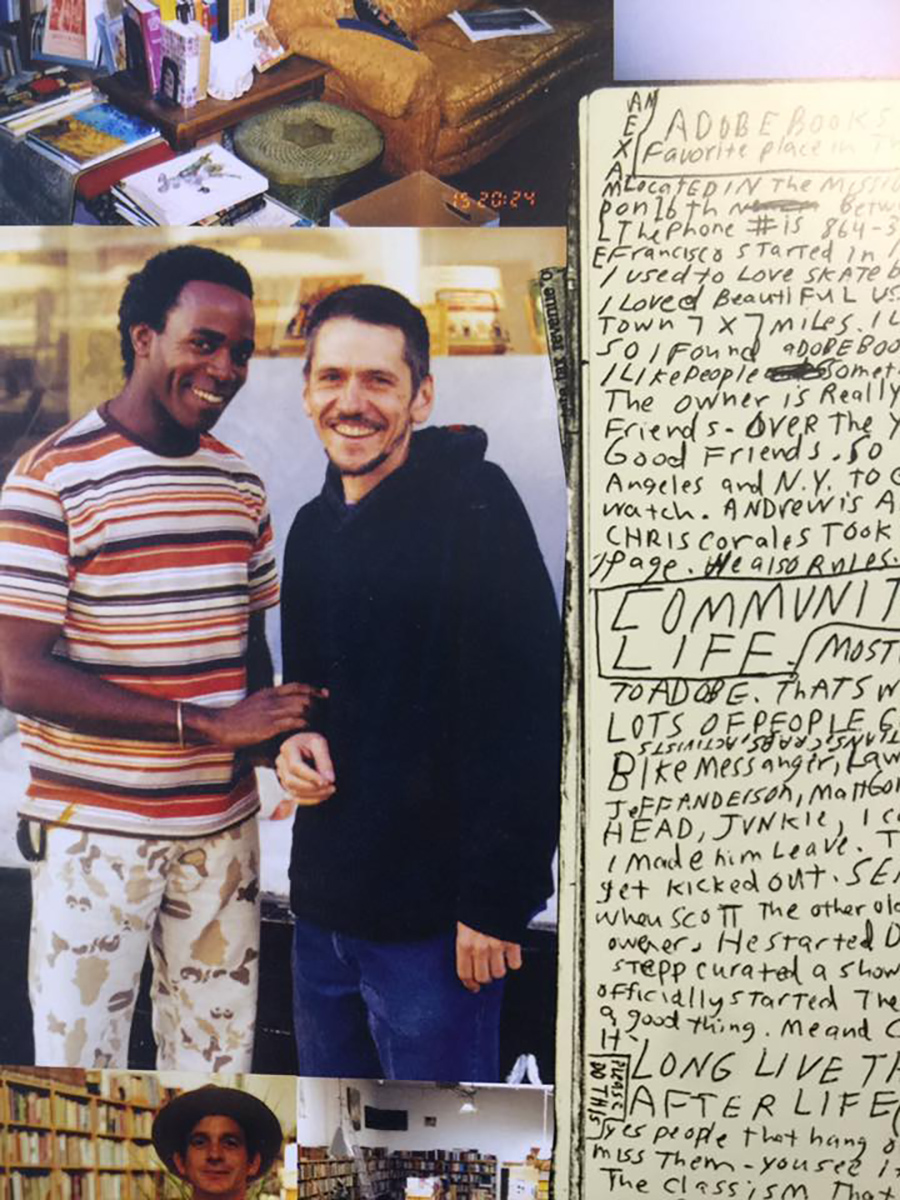 15 20:24
AN EXAMPLE
ADOBE BOOKS
Favorite place in Th
Located IN The Missi
on 16th Betw
The Phone # is 864-3
Francisco STarted in
I used to Love SKATE b
I Loved BeautiFUL US
Town 7 x 7 miles. I L
SO I Found aDOBE BOO
I Like People Somet
The owner is Really
Friends - OVER The Y
Good Friends. SO
Angeles and N.Y. TO
watch. ANDREW is A
CHRIS corales TOOK
Page. He also Rules.
COMMUNIT
LIFE. MOST
TO ADOBE. ThATS W
LOTS OF PEOPLE G
BIKe Messanger, Law
JeFF ANDERSON, MaTTGon
HEAD, JVNKIe, I co
I made him Leave. T
get kicked out. SE
when SCOTT The other old
owener. He started D
STepp curated a show
officially STarTed The
a good thing. Me and C
It.
LONG LIVE TH
AFTER LIFE
PLEASE DO THIS
yes people that hang o
miss Them - you see i
The classism That